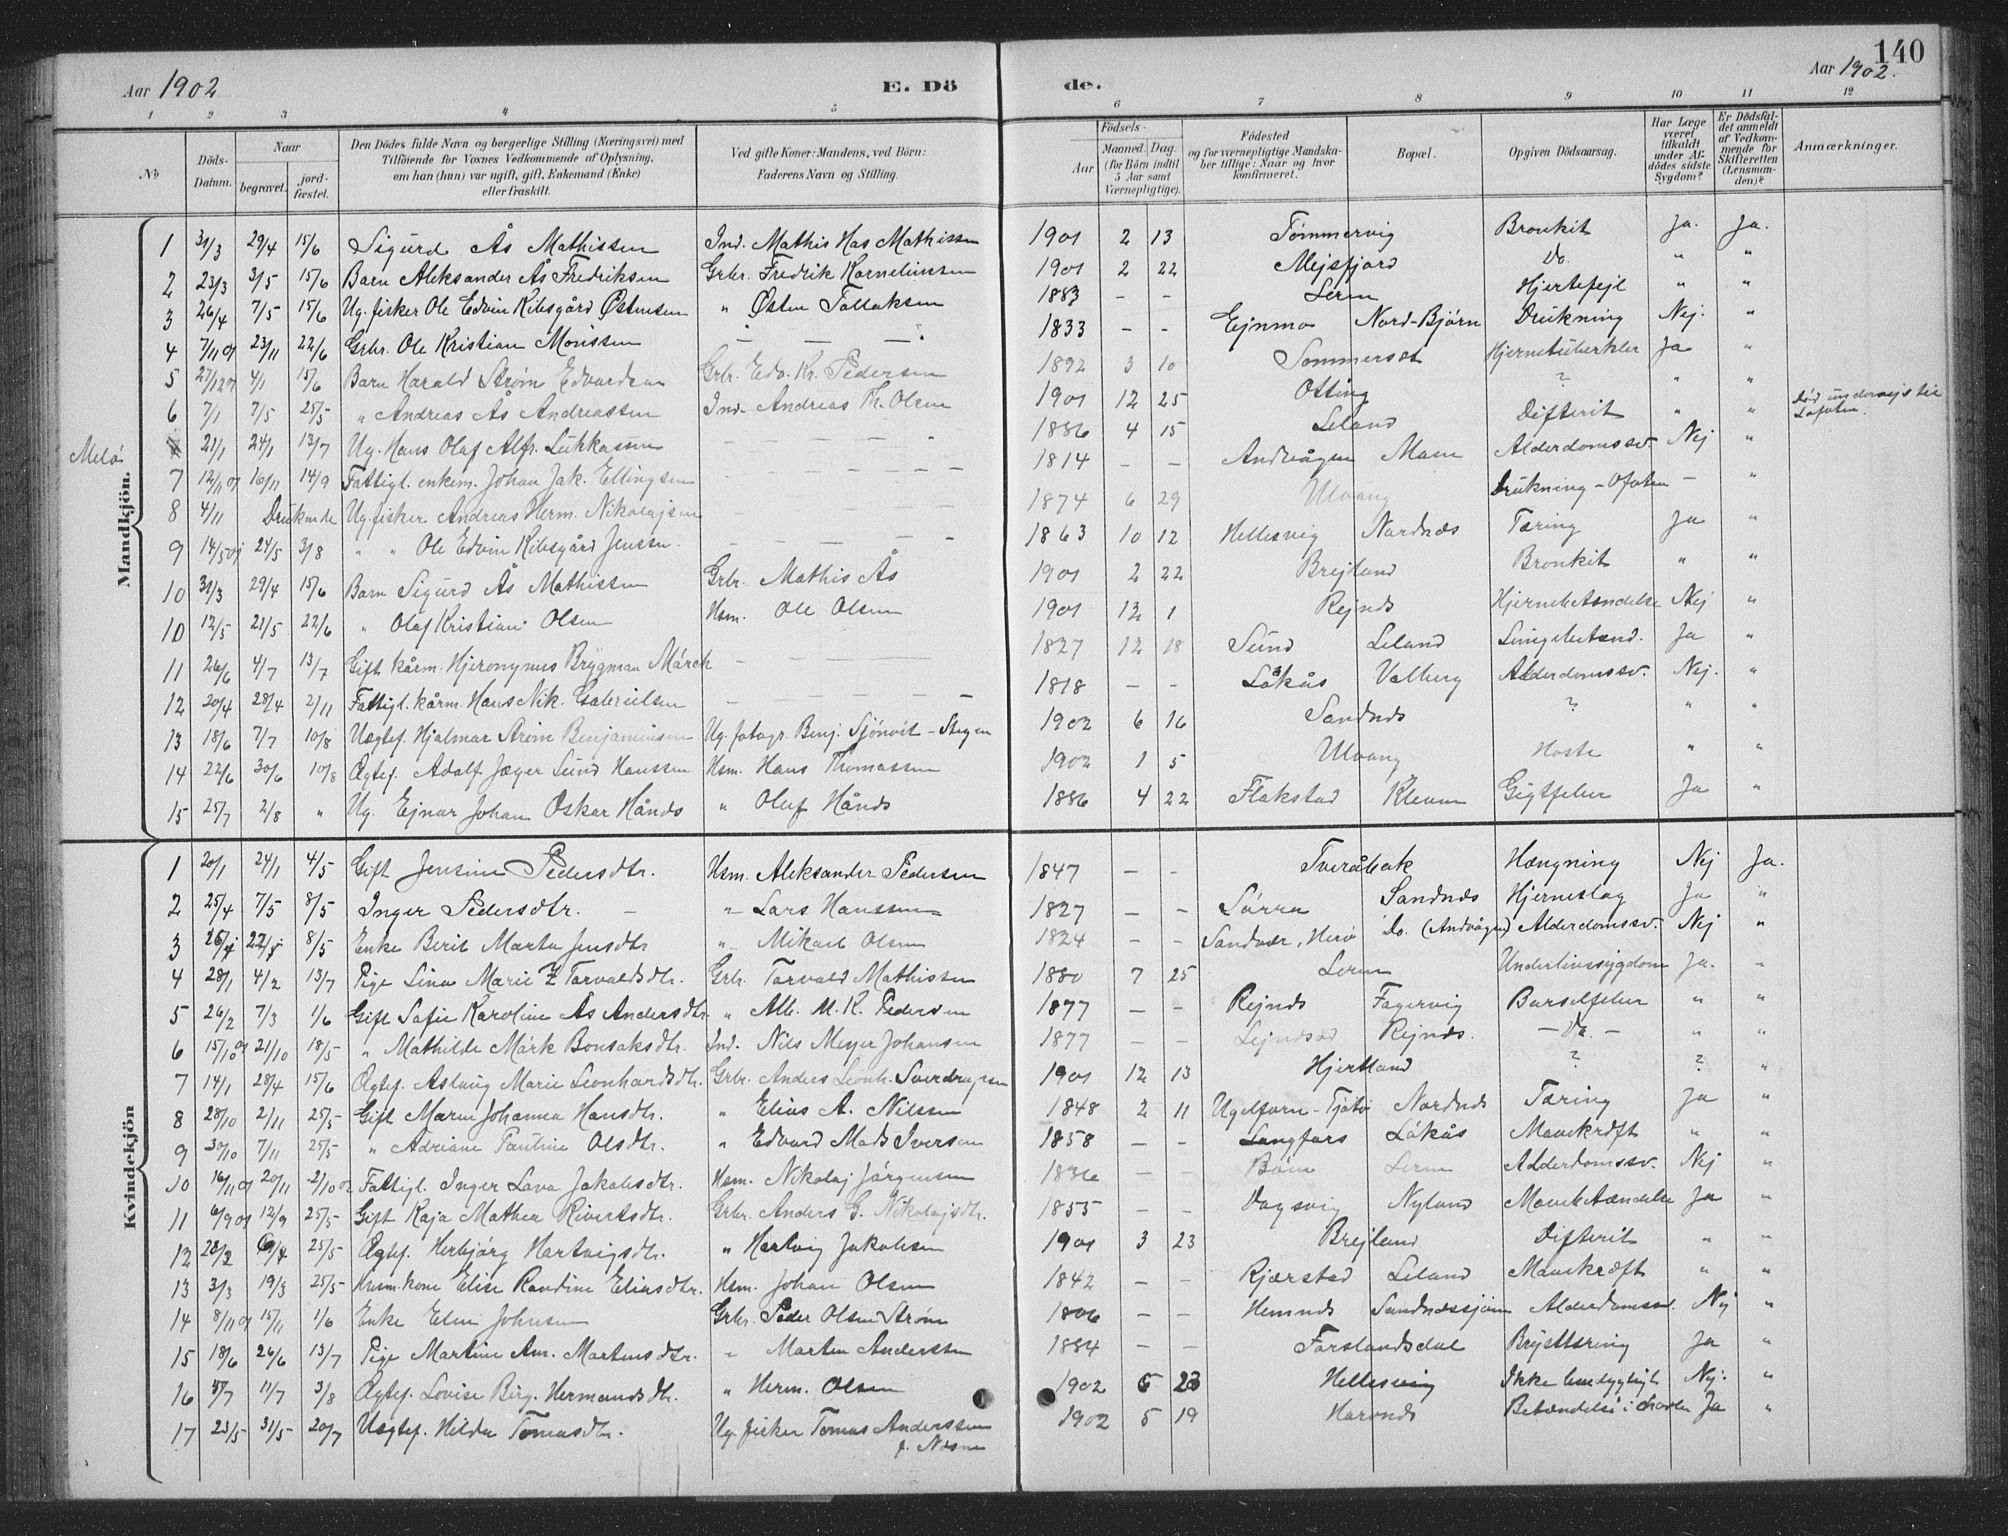 140
Aar 1902
E. Dö
de.
Aar 1902.
1 2 3 4 5 6 7 8 9 10 11 12
No
Döds-Datum.
Naar
begravet.
jord-fæstet.
Den Dödes fulde Navn og borgerlige Stilling (Næringsvei) med
Tilföiende for Voxnes Vedkommende af Oplysning,
om han (hun) var ugift, gift, Enkemand (Enke)
eller fraskilt.
Ved gifte Koner: Mandens, ved Börn:
Faderens Navn og Stilling.
Födsels-
Aar
Maaned. Dag.
(for Börn indtil
5 Aar samt
Værnepligtige).
Födested
og for værnepligtige Mandska-
ber tillige: Naar og hvor
konfirmeret.
Bopæl.
Opgiven Dödsaarsag.
Har Læge
været
tilkaldt
under Af-
dödes sidste
Sygdom?
Er Dödsfal-
det anmeldt
af Vedkom-
mende for
Skifteretten
(Lensman-
den)?
Anmærkninger.
Mandkjön.
1 31/3 29/4 15/6 Sigurd Ås Mathissen Ind. Mathis Has Mathissen 1901 2 13 Tømmervig Bronkit Ja. Ja.
2 23/3 3/5 15/6 Barn Aleksander Ås Fredriksen Grbr. Fredrik Kornelinssen 1901 2 22 Mejsfjord Do. " "
3 26/4 7/5 15/6 Ug. fisker Ole Edvin Kibsgård Østensen " Østen Tollaksen 1883 – – Leren Hjertefejl " "
4 7/11 01 23/11 22/6 Grbr. Ole Kristian Monssen — — — 1833 – – Ejnmo Nord-Bjørn Drukning Nej. "
5 27/12 01 4/1 15/6 Barn Harald Strøm Edvardsen Grbr. Edv. Kr. Pedersen 1892 3 10 Sommerset Hjernetuberkler Ja "
6 7/1 7/5 25/5 " Andreas Ås Andreassen Ind. Andreas Th. Olsen 1901 12 25 Otting ? " "
Melø 21/1 24/1 13/7 Ug. Hans Olaf Alfr. Lukkassen — — — 1886 4 15 Leland Difterit " " Død undervejs til
Lofoten.
7 12/11 01 16/11 14/9 Fattigl. enkem. Johan Jak. Ellingsen — — — 1814 – – Andvågen Moen Alderdomssv. Nej "
8 4/11 Druknede Ug. fisker Andreas Herm. Nikolajsen — — — 1874 6 29 Ulvang Drukning - Ofoten – "
9 14/5 01 24/5 3/8 " " Ole Edvin Kibsgård Jenssen. — — — 1863 10 12 Hellesvig Nordnæs Tæring Ja "
10 31/3 29/4 15/6 Barn Sigurd Ås Mathissen Grbr. Mathis Ås 1901 2 22 Brejland Bronkit " "
10 12/5 21/5 22/6 " Olaf Kristian Olsen Hsm. Ole Olsen 1901 12 1 Rejnæs Hjernebetændelse Nej "
11 26/6 4/7 13/7 Gift kårm. Hjeronymus Brygman Mårck — — — 1827 12 18 Sund Leland Lungebetænd. Ja "
12 20/4 28/4 2/11 Fattigl. kårm. Hans Nik. Gabrielsen — — — 1818 – – Låkås Valberg Alderdomssv. Nej. "
13 18/6 7/7 10/8 Uægtef. Hjalmar Strøm Benjaminsen Ug. fotogr. Benj. Sjönvit – Stegen 1902 6 16 Sandnæs ? " "
14 22/6 30/6 10/8 Ægtef. Adolf Jæger Sund Hanssen Hsm. Hans Thomassen 1902 1 5 Ulvang Hoste " "
15 25/7 2/8 " Ug. Ejnar Johan Oskar Hånds " Oluf Hånds 1886 4 22 Flakstad Kleven Gigtfeber Ja "
Kvindekjön
1 20/1 24/1 4/5 Gift Jensine Pedersdtr. Hsm. Aleksander Pedersen 1847 – – Tveråbak Hængning Nej Ja.
2 25/4 7/5 8/5 Inger Pedersdtr. – " Lars Hanssen 1827 – – Sørra Sandnæs Hjerneslag Ja "
3 8/5 Enke Berit Marta Jensdtr " Mikael Olsen 1824 – – Sandvær, Herø Do. (Andvågen) Alderdomssv. Nej "
4 28/1 4/2 13/7 Pige Lina Marie Z Torvaldsdtr. Grbr. Torvald Mathissen 1880 7 25 Leren Underlivssygdom Ja. "
5 26/2 7/3 1/6 Gift Sofie Karoline Ås Andersdtr. " Alb. M. K. Pedersen 1877 – – Rejnæs Fagervig Barselfeber " "
6 15/10 01 21/10 18/5 " Mathilde Mårk Bonsaksdtr. Ind. Nils Meyer Johansen 1877 – – Rejnæs. – Do. – " "
7 14/1 28/4 15/6 Ægtef. Aslaug Marie Leonhardsdtr. Grbr. Anders Leonh. Sverdrupsen 1901 12 13 Hjertland ? ? "
8 28/10 2/11 25/5 Gift Maren Johanna Hansdtr. " Elias A. Nilssen 1848 2 11 Ugelfarn - Tjøtø Nordnæs Tæring Ja "
9 30/10 7/11 25/5 " Adriane Pauline Olsdtr. " Edvard Mads Iversen 1858 – – Langfors Låkås Mavekræft " "
10 16/11 01 20/11 2/10 02 Fattigl. Inger Lava Jakobsdtr. Hsm. Nikolaj Jørgensen 1836 – – Båen Leren Alderdomssv. Nej "
11 6/9 01 12/9 25/5 Gift Kaja Mathea Rivertsdtr. Grbr. Anders G. Nikolajsdtr. 1855 – – Dagsvig Nyland Mavebetændelse Ja "
12 25/5 Ægtef. Herbjørg Hartvigsdtr. " Hartvig Jakobsen 1901 3 23 Brejland Difterit " "
13 3/3 19/3 25/5 Husm. kone Elise Randine Eliasdtr. Hsm. Johan Olsen 1842 – – Kjærstad Leland Mavekræft " "
14 8/11 01 15/11 1/6 Enke Elen Johnsen Grbr. Peder Olsen Strøm 1806 – – Hemnæs Sandnæssjøen Alderdomssv. Nej "
15 18/6 26/6 13/7 Pige Martine Am. Martensdtr. " Marten Anderssen 1884 Forslandsdal Brysttæring Ja "
16 5/7 11/7 3/8 Ægtef. Lovise Birg. Hermansdtr. " Herm. Olsen 1902 5 23 Hellesvig Ikke Nej. "
17 23/5 31/5 20/7 Uægtef. Hilda Tomasdtr. Ug. fisker Tomas Anderssen
f. Næsne 1902 5 19 Betændelse i Ja "